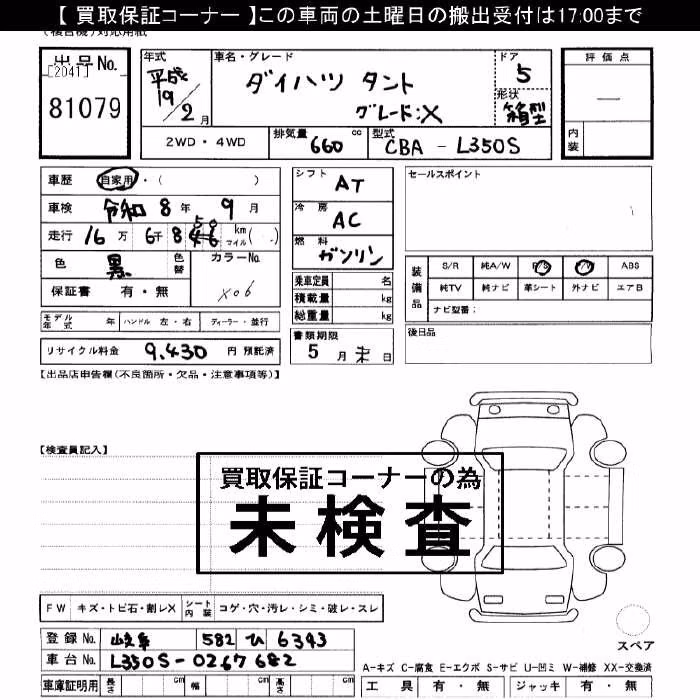 【 買取保証コーナー 】この車両の土曜日の搬出受付は17:00まで
出品No.
[2041]
81079
年式
平成
19
2月
車名・グレード
ダイハツ タント
グレード:X
ドア
5
形状
箱型
評価点
―
内装
2WD・4WD
排気量 660 cc
型式 CBA - L350S
車歴 自家用・( )
車検 令和 8年 9月
走行 16万 6千8 km マイル( )
色 黒 色替
カラーNo. X06
保証書 有・無
シフト AT
冷房 AC
燃料 ガソリン
乗車定員 名
積載量 kg
総重量 kg
セールスポイント
装備品
S/R 純A/W P/S P/W ABS
純TV 純ナビ 革シート 外ナビ エアB
ナビ型番:
モデル年式 年 ハンドル 左・右 ディーラー・並行
書類期限
5月末日
後日品
リサイクル料金 9,430 円 預託済
【出品店申告欄(不良箇所・欠品・注意事項等)】
【検査員記入】
買取保証コーナーの為
未検査
FW キズ・トビ石・割レX シート内装 コゲ・穴・汚レ・シミ・破レ・スレ
登録No. 岐阜 582 ひ 6393
車台No. L350S-0267682
車庫証明用 長さ cm 幅 cm 高さ cm
スペア
A-キズ C-腐食 E-エクボ S-サビ U-凹ミ W-補修 XX-交換済
工具 有・無 ジャッキ 有・無